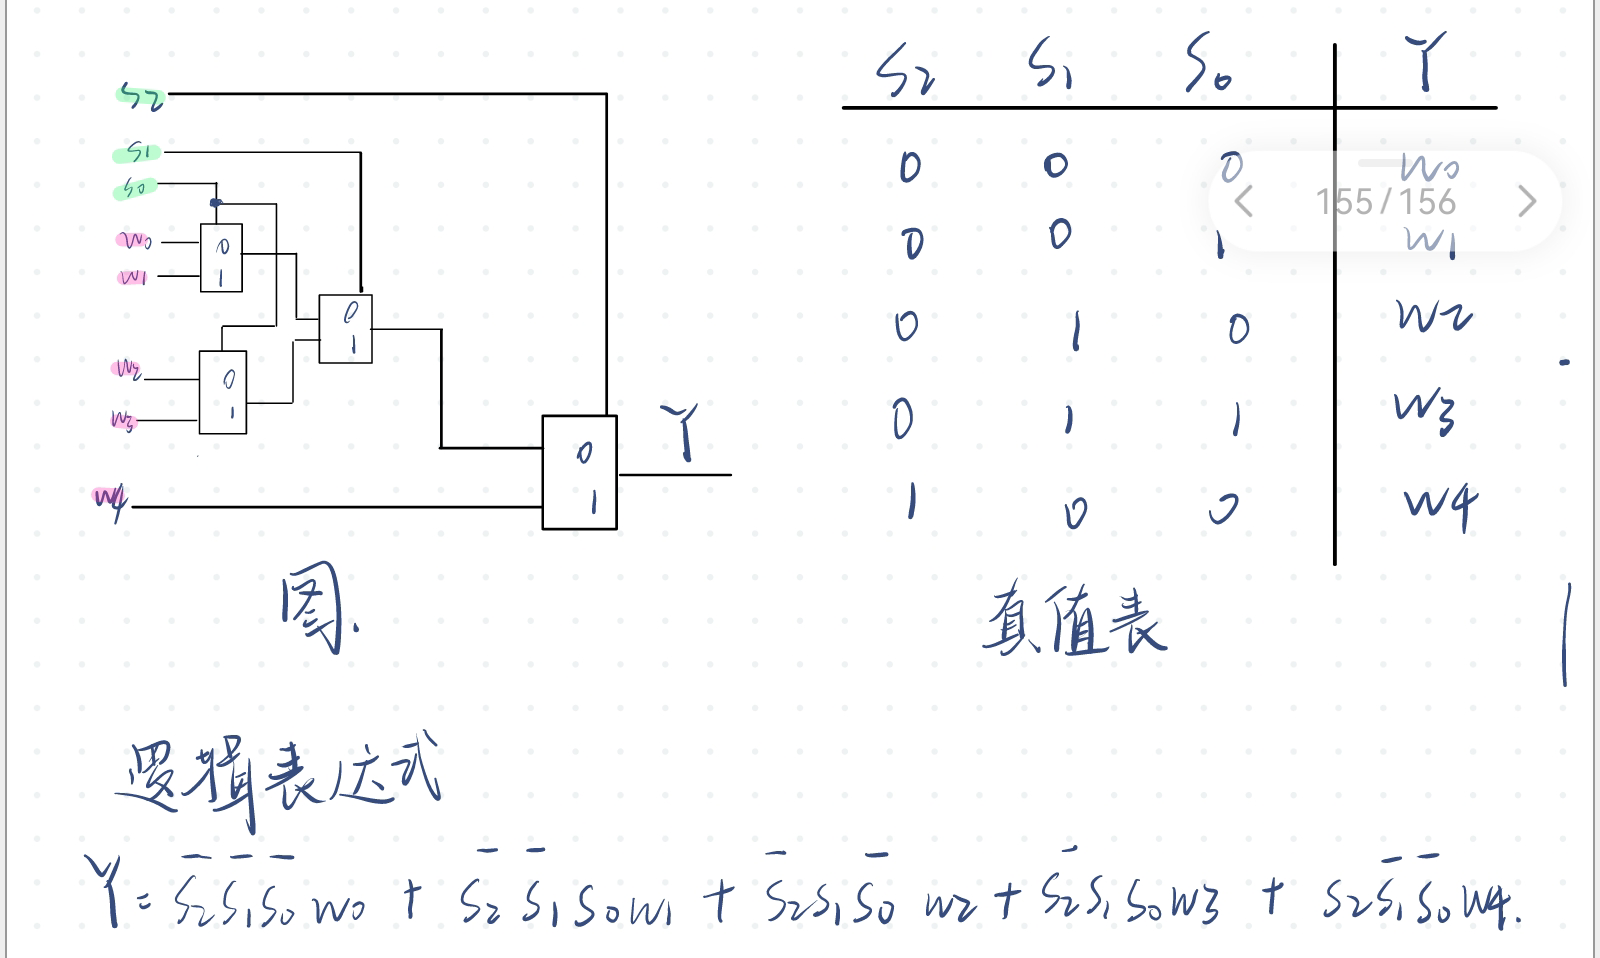 S2
S1
S0
W0
W1
0
1
W2
W3
0
1
0
1
W4
0
1
Y
图.
S2 S1 S0 Y
0 0 0 W0
155/156
0 0 1 W1
0 1 0 W2
0 1 1 W3
1 0 0 W4
真值表
逻辑表达式
Y = S̅2S̅1S̅0W0 + S̅2S̅1S0W1 + S̅2S1S̅0W2 + S̅2S1S0W3 + S2S̅1S̅0W4.